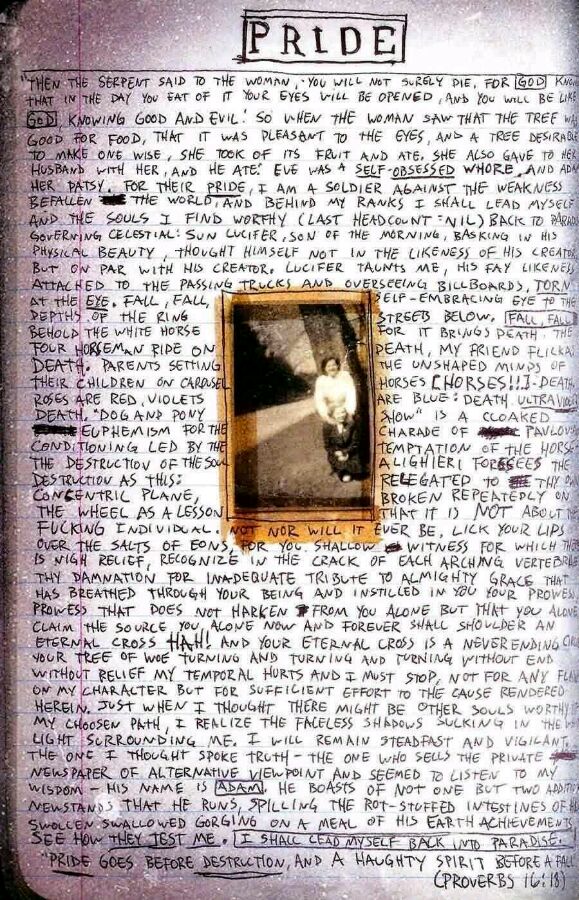 PRIDE
"THEN THE SERPENT SAID TO THE WOMAN, 'YOU WILL NOT SURELY DIE, FOR GOD KNOW
THAT IN THE DAY YOU EAT OF IT YOUR EYES WILL BE OPENED, AND YOU WILL BE LIKE
GOD KNOWING GOOD AND EVIL.' SO WHEN THE WOMAN SAW THAT THE TREE WA
GOOD FOR FOOD, THAT IT WAS PLEASANT TO THE EYES, AND A TREE DESIRABLE
TO MAKE ONE WISE, SHE TOOK OF ITS FRUIT AND ATE. SHE ALSO GAVE TO HER
HUSBAND WITH HER, AND HE ATE.' EVE WAS A SELF-OBSESSED WHORE, AND ADA
HER PATSY. FOR THEIR PRIDE, I AM A SOLDIER AGAINST THE WEAKNESS
BEFALLEN THE WORLD, AND BEHIND MY RANKS I SHALL LEAD MYSELF
AND THE SOULS I FIND WORTHY (LAST HEADCOUNT = NIL) BACK TO PARAD
GOVERNING CELESTIAL: SUN LUCIFER, SON OF THE MORNING, BASKING IN HIS
PHYSICAL BEAUTY, THOUGHT HIMSELF NOT IN THE LIKENESS OF HIS CREATOR
BUT ON PAR WITH HIS CREATOR. LUCIFER TAUNTS ME, HIS FAY LIKENESS
ATTACHED TO THE PASSING TRUCKS AND OVERSEEING BILLBOARDS, TORN
AT THE EYE. FALL, FALL, SELF-EMBRACING EYE TO THE
DEPTHS OF THE RING STREETS BELOW. FALL, FALL
BEHOLD THE WHITE HORSE FOR IT BRINGS DEATH. THE
FOUR HORSEMAN RIDE ON DEATH, MY FRIEND FLICKA:
DEATH. PARENTS SETTING THE UNSHAPED MINDS OF
THEIR CHILDREN ON CAROUSEL HORSES [HORSES!!]-DEATH
ROSES ARE RED, VIOLETS ARE BLUE: DEATH ULTRAVIOLE
DEATH. "DOG AND PONY SHOW" IS A CLOAKED
EUPHEMISM FOR THE CHARADE OF PAVLOV
CONDITIONING LED BY THE TEMPTATION OF THE HORSE
THE DESTRUCTION OF THE SOUL ALIGHIERI FORESEES THE
DESTRUCTION AS THIS: RELEGATED TO THY OWN
CONCENTRIC PLANE, BROKEN REPEATEDLY ON
THE WHEEL AS A LESSON THAT IT IS NOT ABOUT THE
FUCKING INDIVIDUAL. NOT NOR WILL IT EVER BE. LICK YOUR LIPS
OVER THE SALTS OF EONS, FOR YOU SHALLOW WITNESS FOR WHICH THE
IS NIGH RELIEF, RECOGNIZE IN THE CRACK OF EACH ARCHING VERTEBRAE
THY DAMNATION FOR INADEQUATE TRIBUTE TO ALMIGHTY GRACE THAT
HAS BREATHED THROUGH YOUR BEING AND INSTILLED IN YOU YOUR PROWESS
PROWESS THAT DOES NOT HARKEN FROM YOU ALONE BUT THAT YOU ALONE
CLAIM THE SOURCE YOU ALONE NOW AND FOREVER SHALL SHOULDER AN
ETERNAL CROSS HAH! AND YOUR ETERNAL CROSS IS A NEVERENDING
YOUR TREE OF WOE TURNING AND TURNING AND TURNING WITHOUT END
WITHOUT RELIEF MY TEMPORAL HURTS AND I MUST STOP, NOT FOR ANY FLAW
ON MY CHARACTER BUT FOR SUFFICIENT EFFORT TO THE CAUSE RENDERED
HEREIN. JUST WHEN I THOUGHT THERE MIGHT BE OTHER SOULS WORTHY
MY CHOOSEN PATH, I REALIZE THE FACELESS SHADOWS SULKING IN THE
LIGHT SURROUNDING ME. I WILL REMAIN STEADFAST AND VIGILANT.
THE ONE I THOUGHT SPOKE TRUTH - THE ONE WHO SELLS THE PRIVATE
NEWSPAPER OF ALTERNATIVE VIEWPOINT AND SEEMED TO LISTEN TO MY
WISDOM - HIS NAME IS ADAM. HE BOASTS OF NOT ONE BUT TWO ADDITIO
NEWSTANDS THAT HE RUNS, SPILLING THE ROT-STUFFED INTESTINES OF HI
SWOLLEN SWALLOWED GORGING ON A MEAL OF HIS EARTH ACHIEVEMENTS
SEE HOW THEY JEST ME. I SHALL LEAD MYSELF BACK INTO PARADISE.
"PRIDE GOES BEFORE DESTRUCTION, AND A HAUGHTY SPIRIT BEFORE A FALL
(PROVERBS 16:18)